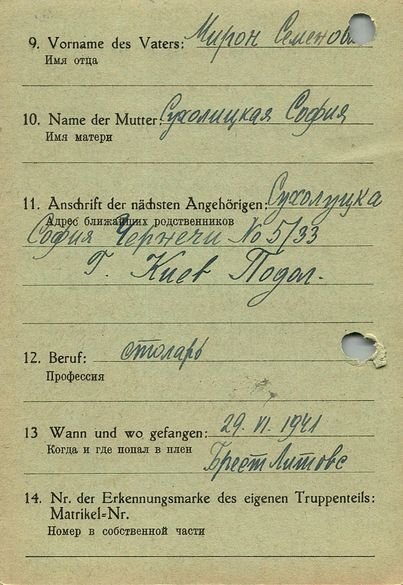 9. Vorname des Vaters: Мирон Семенов
Имя отца
10. Name der Mutter: Сухолицкая София
Имя матери
11. Anschrift der nächsten Angehörigen: Сухолуцка
Адрес ближайших родственников
София Чернечи No 5/33
Г. Киев Подол.
12. Beruf: столарь
Профессия
13 Wann und wo gefangen: 29. VI. 1941
Когда и где попал в плен
Брест Литовс
14. Nr. der Erkennungsmarke des eigenen Truppenteils:
Matrikel-Nr.
Номер в собственной части